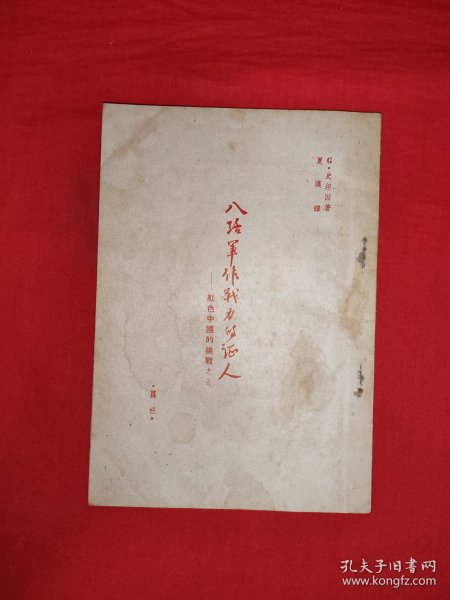 G·史坦因著
夏漢譯
八路军作战力的证人
——紅色中國的挑戰之七
·晨社·
孔夫子旧书网
www.kongfz.com